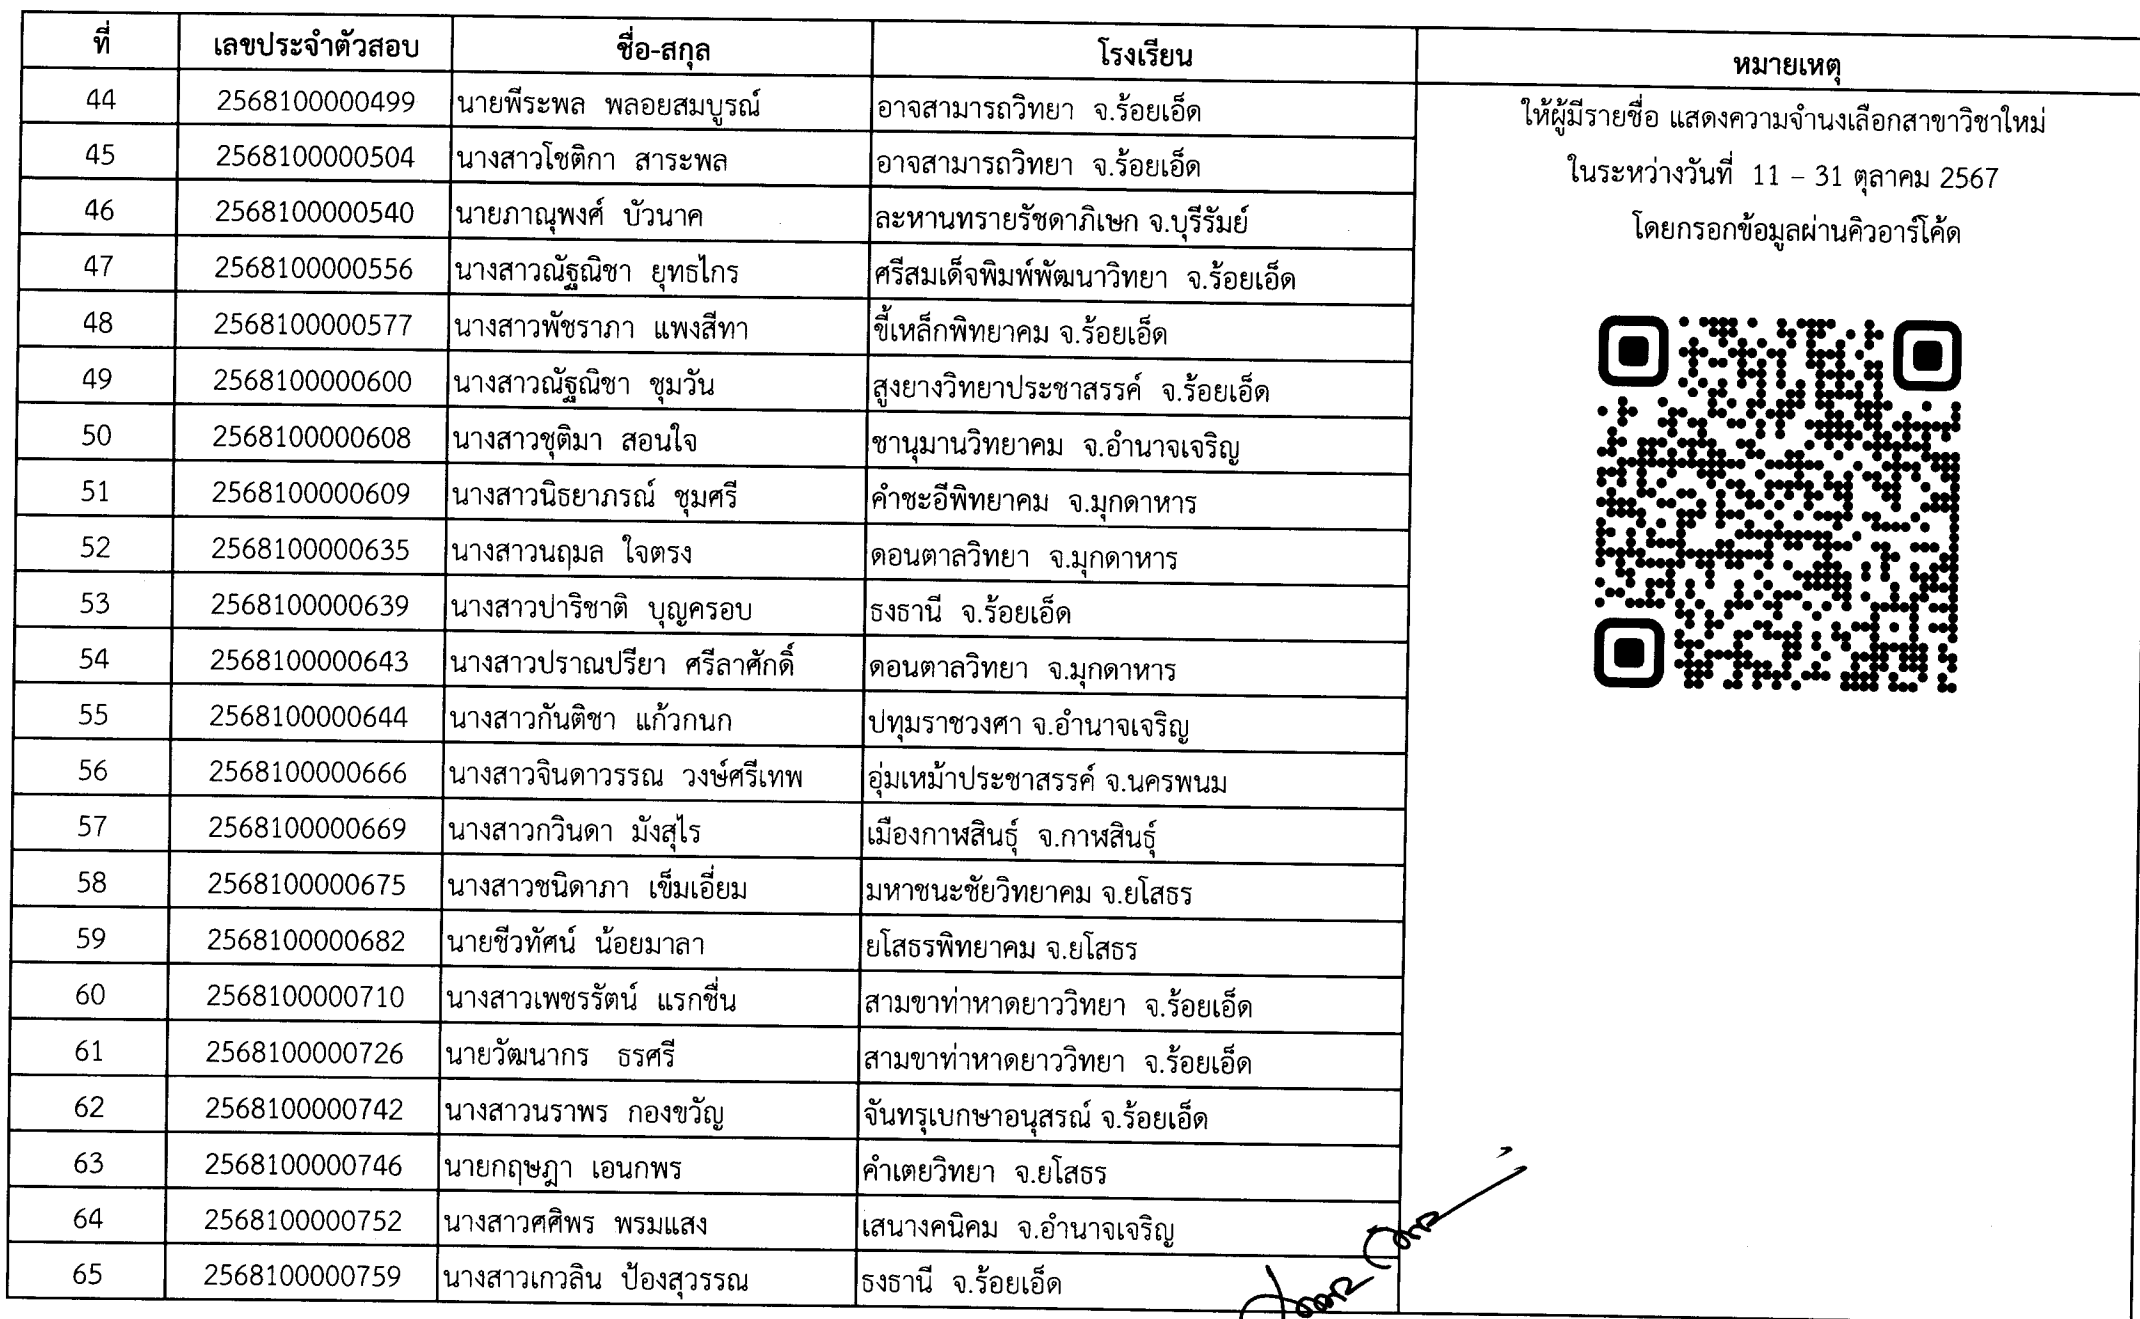 ที่ เลขประจำตัวสอบ ชื่อ-สกุล โรงเรียน หมายเหตุ
44 2568100000499 นายพีระพล พลอยสมบูรณ์ อาจสามารถวิทยา จ.ร้อยเอ็ด ให้ผู้มีรายชื่อ แสดงความจำนงเลือกสาขาวิชาใหม่
45 2568100000504 นางสาวโชติกา สาระพล อาจสามารถวิทยา จ.ร้อยเอ็ด ในระหว่างวันที่ 11 – 31 ตุลาคม 2567
46 2568100000540 นายภาณุพงศ์ บัวนาค ละหานทรายรัชดาภิเษก จ.บุรีรัมย์ โดยกรอกข้อมูลผ่านคิวอาร์โค้ด
47 2568100000556 นางสาวณัฐณิชา ยุทธไกร ศรีสมเด็จพิมพ์พัฒนาวิทยา จ.ร้อยเอ็ด
48 2568100000577 นางสาวพัชราภา แพงสีทา ขี้เหล็กพิทยาคม จ.ร้อยเอ็ด
49 2568100000600 นางสาวณัฐณิชา ชุมวัน สูงยางวิทยาประชาสรรค์ จ.ร้อยเอ็ด
50 2568100000608 นางสาวชุติมา สอนใจ ชานุมานวิทยาคม จ.อำนาจเจริญ
51 2568100000609 นางสาวนิธยาภรณ์ ชุมศรี คำชะอีพิทยาคม จ.มุกดาหาร
52 2568100000635 นางสาวนฤมล ใจตรง ดอนตาลวิทยา จ.มุกดาหาร
53 2568100000639 นางสาวปาริชาติ บุญครอบ ธงธานี จ.ร้อยเอ็ด
54 2568100000643 นางสาวปราณปรียา ศรีลาศักดิ์ ดอนตาลวิทยา จ.มุกดาหาร
55 2568100000644 นางสาวกันติชา แก้วกนก ปทุมราชวงศา จ.อำนาจเจริญ
56 2568100000666 นางสาวจินดาวรรณ วงษ์ศรีเทพ อุ่มเหม้าประชาสรรค์ จ.นครพนม
57 2568100000669 นางสาวกวินดา มังสุไร เมืองกาฬสินธุ์ จ.กาฬสินธุ์
58 2568100000675 นางสาวชนิดาภา เข็มเอี่ยม มหาชนะชัยวิทยาคม จ.ยโสธร
59 2568100000682 นายชีวทัศน์ น้อยมาลา ยโสธรพิทยาคม จ.ยโสธร
60 2568100000710 นางสาวเพชรรัตน์ แรกชื่น สามขาท่าหาดยาววิทยา จ.ร้อยเอ็ด
61 2568100000726 นายวัฒนากร ธรศรี สามขาท่าหาดยาววิทยา จ.ร้อยเอ็ด
62 2568100000742 นางสาวนราพร กองขวัญ จันทรุเบกษาอนุสรณ์ จ.ร้อยเอ็ด
63 2568100000746 นายกฤษฎา เอนกพร คำเตยวิทยา จ.ยโสธร
64 2568100000752 นางสาวศศิพร พรมแสง เสนางคนิคม จ.อำนาจเจริญ
65 2568100000759 นางสาวเกวลิน ป้องสุวรรณ ธงธานี จ.ร้อยเอ็ด